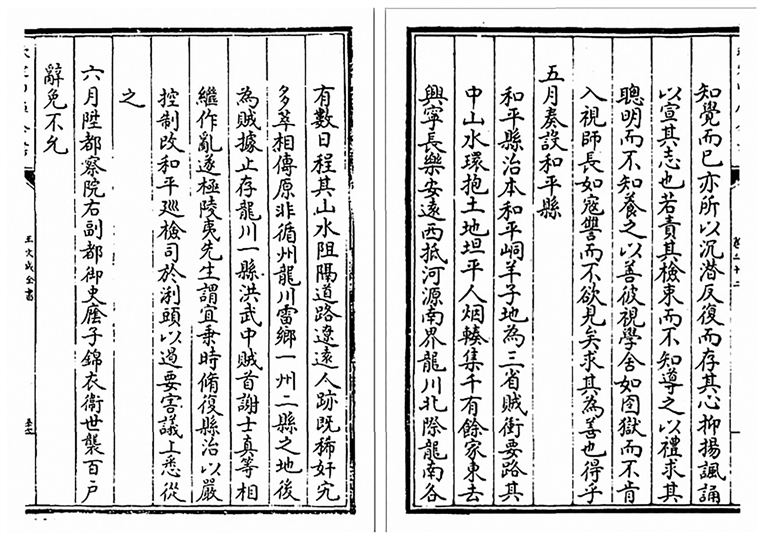 知覺而已亦所以沉潜反復而存其心抑揚諷誦
以宣其志也若責其檢束而不知導之以禮求其
聰明而不知養之以善彼視學舍如囹獄而不肯
入視師長如寇讐而不欲見矣求其為善也得乎
五月奏設和平縣
和平縣治本和平峒羊子地為三省賊衝要路其
中山水環抱土地坦平人烟輳集千有餘家東去
興寧長樂安遠西抵河源南界龍川北際龍南各
卷三十二
有數日程其山水阻隔道路遼遠人跡既稀奸宄
多萃相傳原非循州龍川雷鄉一州二縣之地後
為賊據止存龍川一縣洪武中賊首謝士真等相
繼作亂遂極陵夷先生謂宜乗時脩復縣治以嚴
控制改和平廵檢司於浰頭以遏要害議上悉從
之
六月陞都察院右副都御史廕子錦衣衛世襲百戶
辭免不允
王文成全書